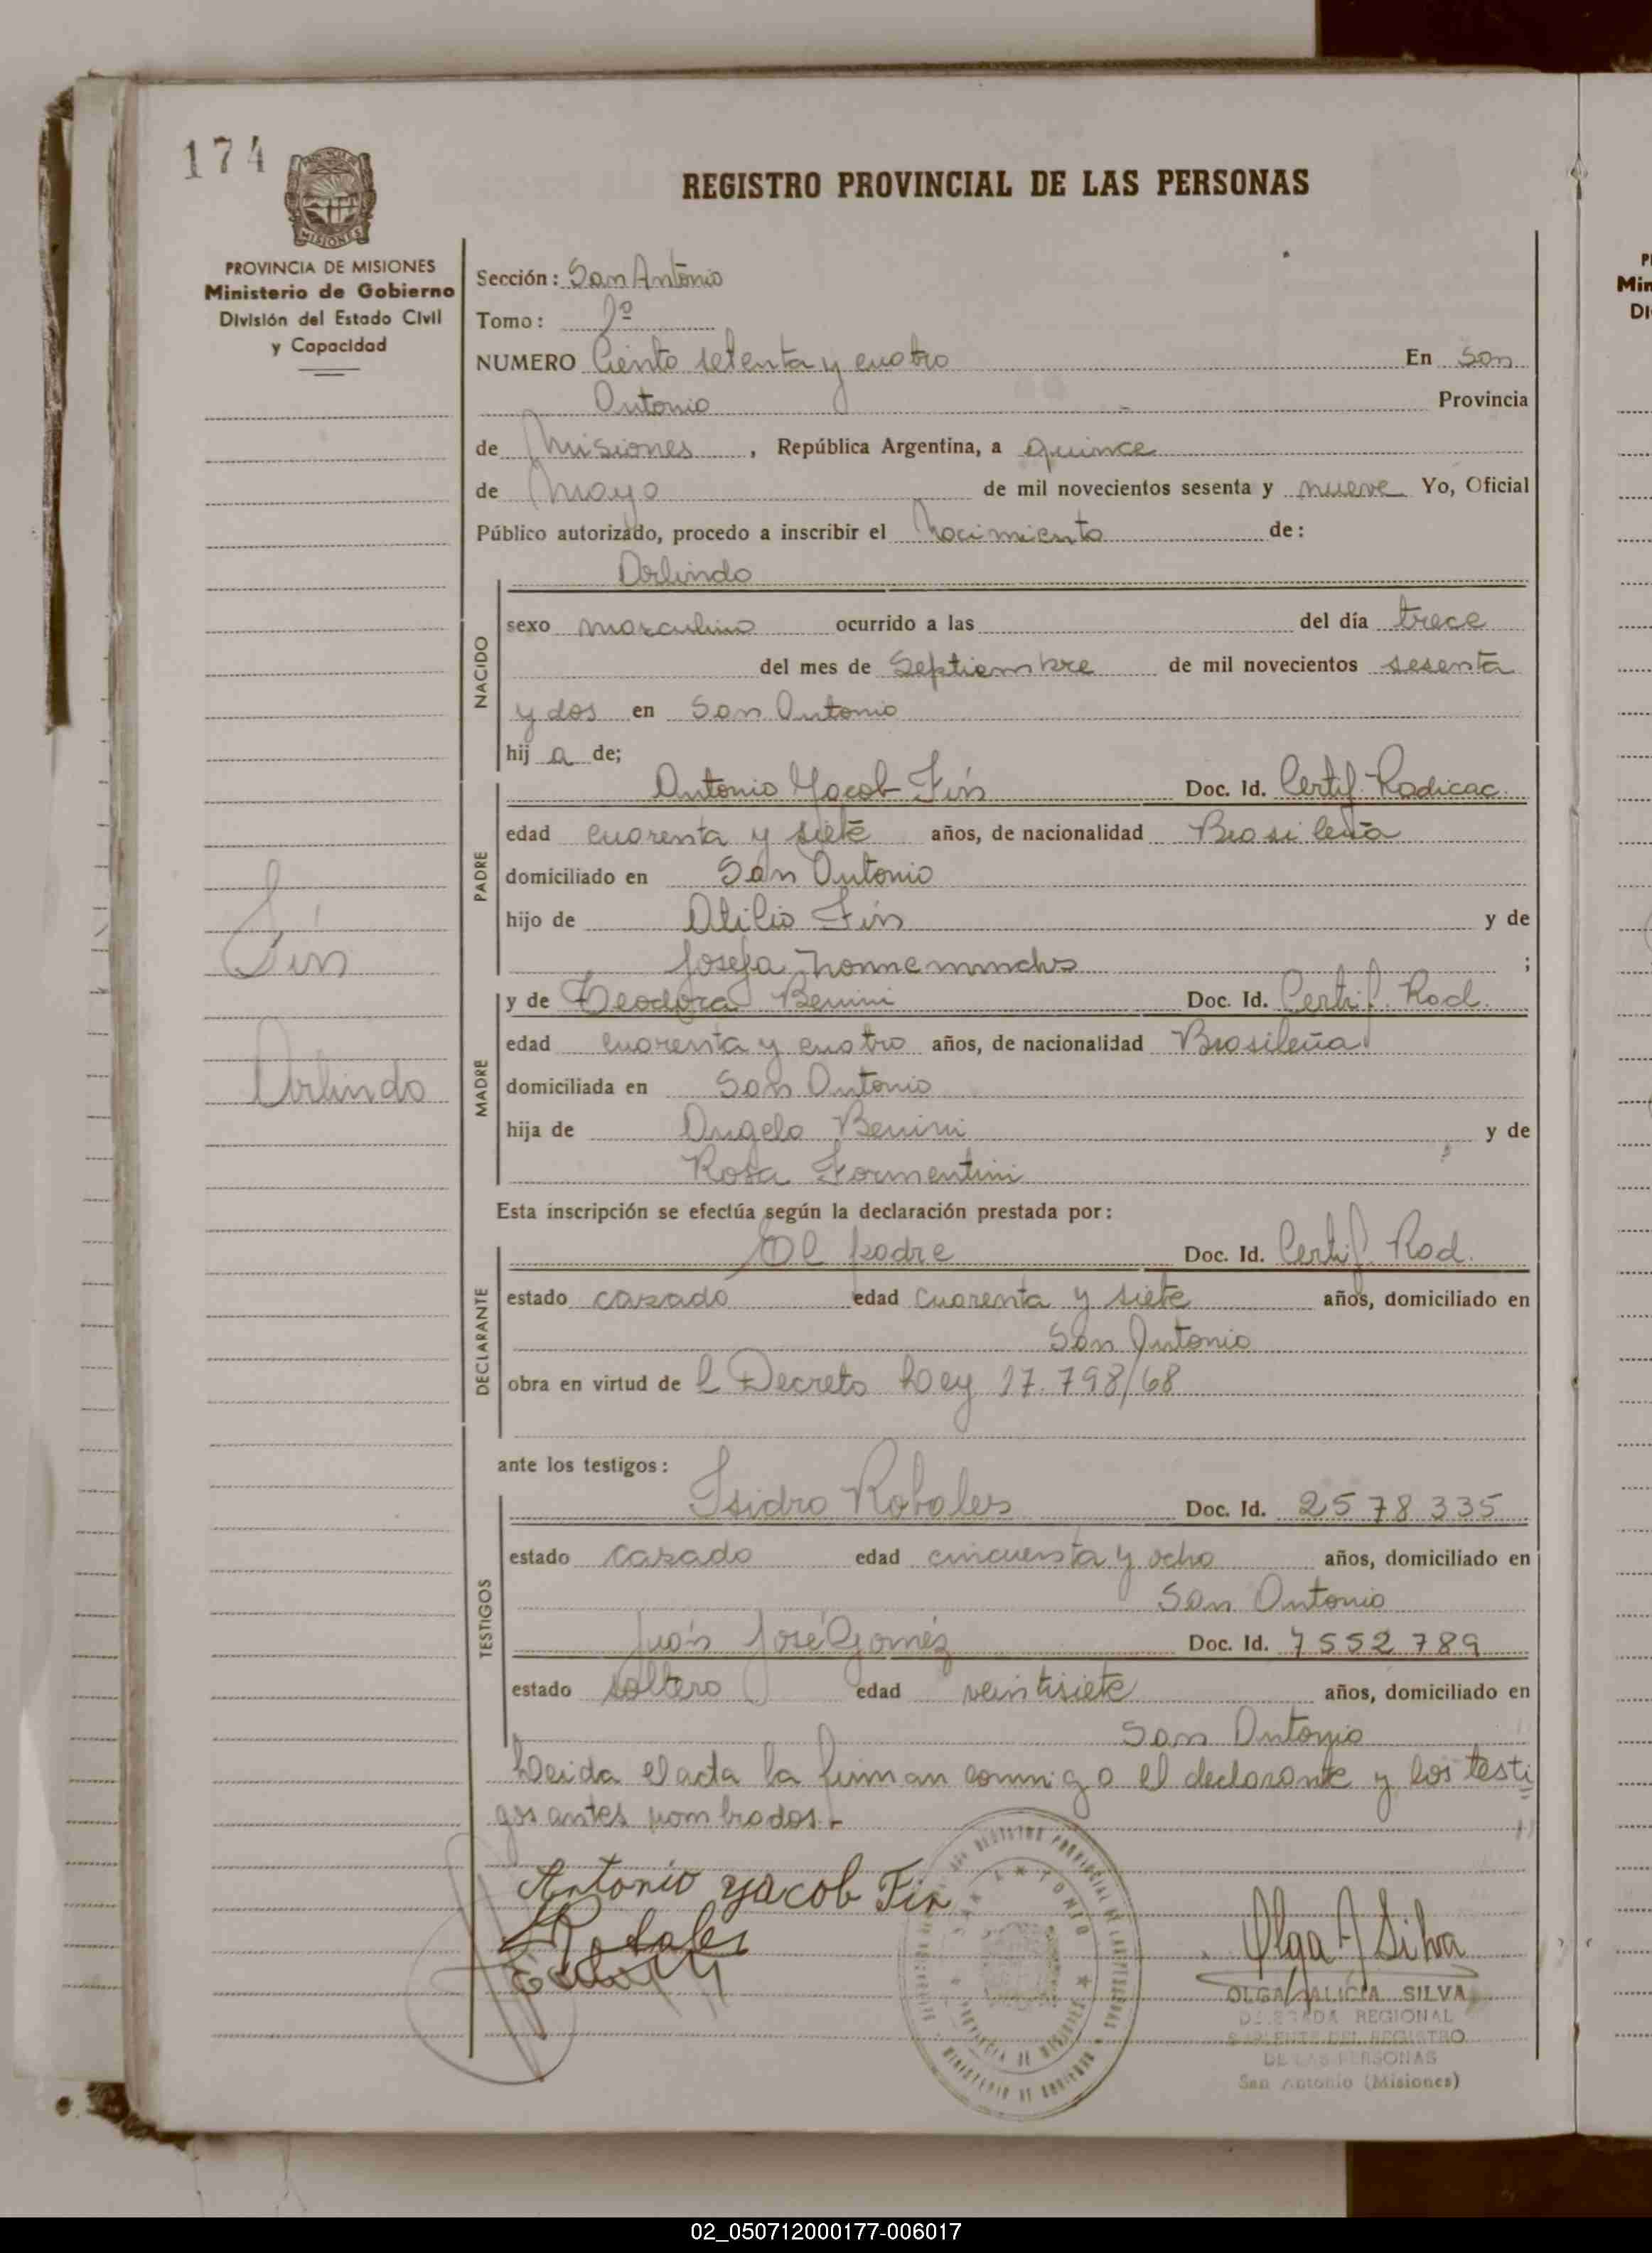 174
REGISTRO PROVINCIAL DE LAS PERSONAS
MISIONES
PROVINCIA DE MISIONES
Ministerio de Gobierno
División del Estado Civil
y Capacidad
Sección: San Antonio
Tomo: 1º
NUMERO Ciento setenta y cuatro En San
Antonio Provincia
de Misiones, República Argentina, a quince
de Mayo de mil novecientos sesenta y nueve Yo, Oficial
Público autorizado, procedo a inscribir el Nacimiento de:
Arlindo
NACIDO
sexo masculino ocurrido a las del día trece
del mes de Septiembre de mil novecientos sesenta
y dos en San Antonio
hij a de;
PADRE
Antonio Yacob Fin Doc. Id. Certif. Radicac.
edad cuarenta y siete años, de nacionalidad Brasileña
domiciliado en San Antonio
hijo de Atilio Fin y de
Josefa ;
Fin
Arlindo
MADRE
y de Teodora Benini Doc. Id. Certif. Rad.
edad cuarenta y cuatro años, de nacionalidad Brasileña
domiciliada en San Antonio
hija de Angelo Benini y de
Rosa Formentini
Esta inscripción se efectúa según la declaración prestada por:
DECLARANTE
El padre Doc. Id. Certif. Rad.
estado casado edad cuarenta y siete años, domiciliado en
San Antonio
obra en virtud de l Decreto Ley 17.798/68
ante los testigos:
TESTIGOS
Isidro Robales Doc. Id. 2578335
estado casado edad cincuenta y ocho años, domiciliado en
San Antonio
Juan José Gomez Doc. Id. 7552789
estado soltero edad veintisiete años, domiciliado en
San Antonio
Leida el acta la firman conmigo el declarante y los testi
gos antes nombrados.-
Antonio Yacob Fin
Olga A Silva
OLGA ALICIA SILVA
DELEGADA REGIONAL
DEL REGISTRO
DE LAS PERSONAS
San Antonio (Misiones)
02_050712000177-006017